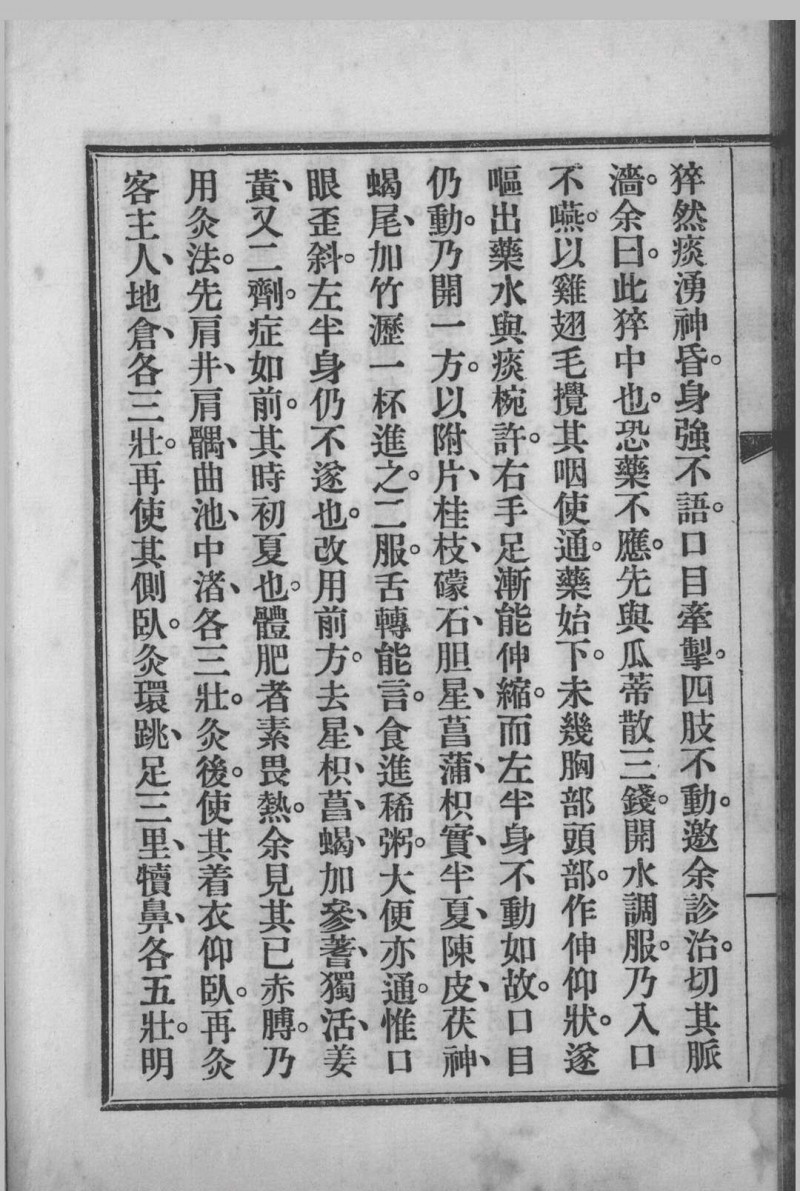 猝然痰湧神昏。身強不語。口目牽掣。四肢不動。邀余診治。切其脈
濇。余曰。此猝中也。恐藥不應。先與瓜蒂散三錢。開水調服。乃入口
不嚥。以雞翅毛攪其咽使通。藥始下。未幾胸部頭部。作伸仰狀。遂
嘔出藥水與痰椀許。右手足漸能伸縮。而左半身不動如故。口目
仍動。乃開一方。以附片、桂枝、礞石、胆星、菖蒲、枳實、半夏、陳皮、茯神、
蝎尾、加竹瀝一杯進之。二服。舌轉能言。食進稀粥。大便亦通。惟口
眼歪斜。左半身仍不遂也。改用前方。去星、枳、菖、蝎、加參、蓍、獨活、姜
黃、又二劑。症如前。其時初夏也。體肥者素畏熱。余見其已赤膊。乃
用灸法。先肩井、肩髃、曲池、中渚、各三壯。灸後。使其着衣仰臥。再灸
客主人、地倉、各三壯。再使其側臥。灸環跳、足三里、犢鼻、各五壯。明